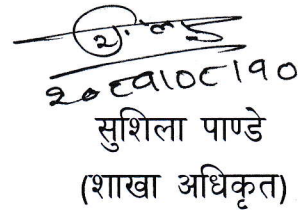 २०८१।०८।१०
सुशिला पाण्डे
(शाखा अधिकृत)